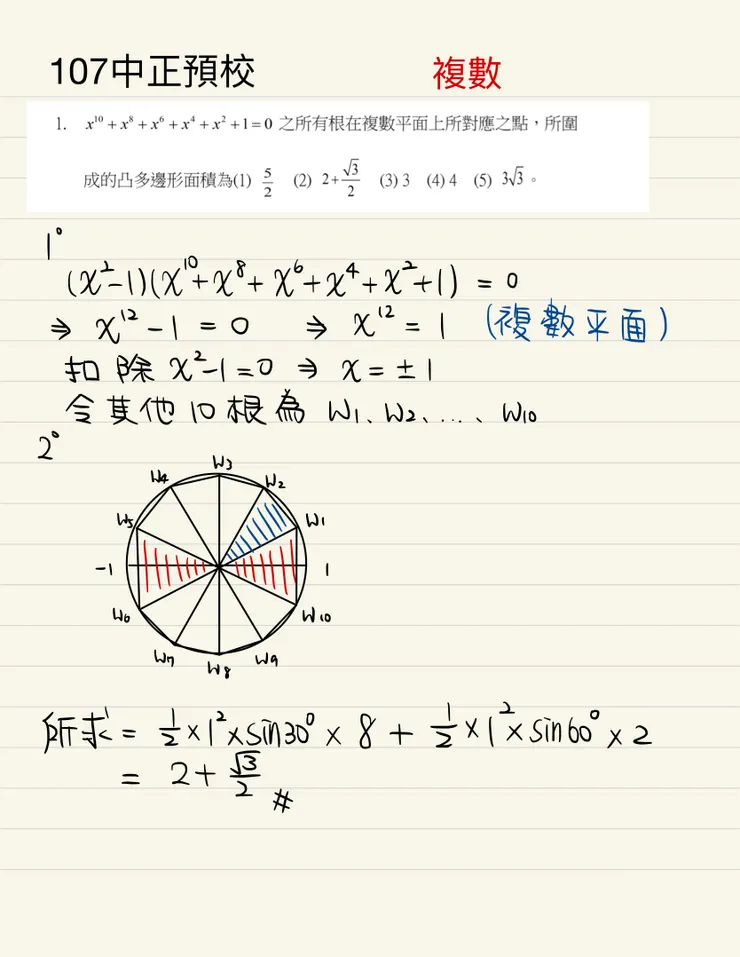 107中正預校 複數
1. x¹⁰+x⁸+x⁶+x⁴+x²+1=0 之所有根在複數平面上所對應之點，所圍
成的凸多邊形面積為(1) 5/2 (2) 2+√3/2 (3) 3 (4) 4 (5) 3√3。
1°
(x²-1)(x¹⁰+x⁸+x⁶+x⁴+x²+1) = 0
⇒ x¹²-1=0 ⇒ x¹²=1 (複數平面)
扣除 x²-1=0 ⇒ x=±1
令其他10根為 W₁、W₂、...、W₁₀
2°
W₃
W₄ W₂
W₅ W₁
-1 1
W₆ W₁₀
W₇ W₈ W₉
所求 = 1/2×1²×sin30°×8 + 1/2×1²×sin60°×2
= 2+√3/2 #